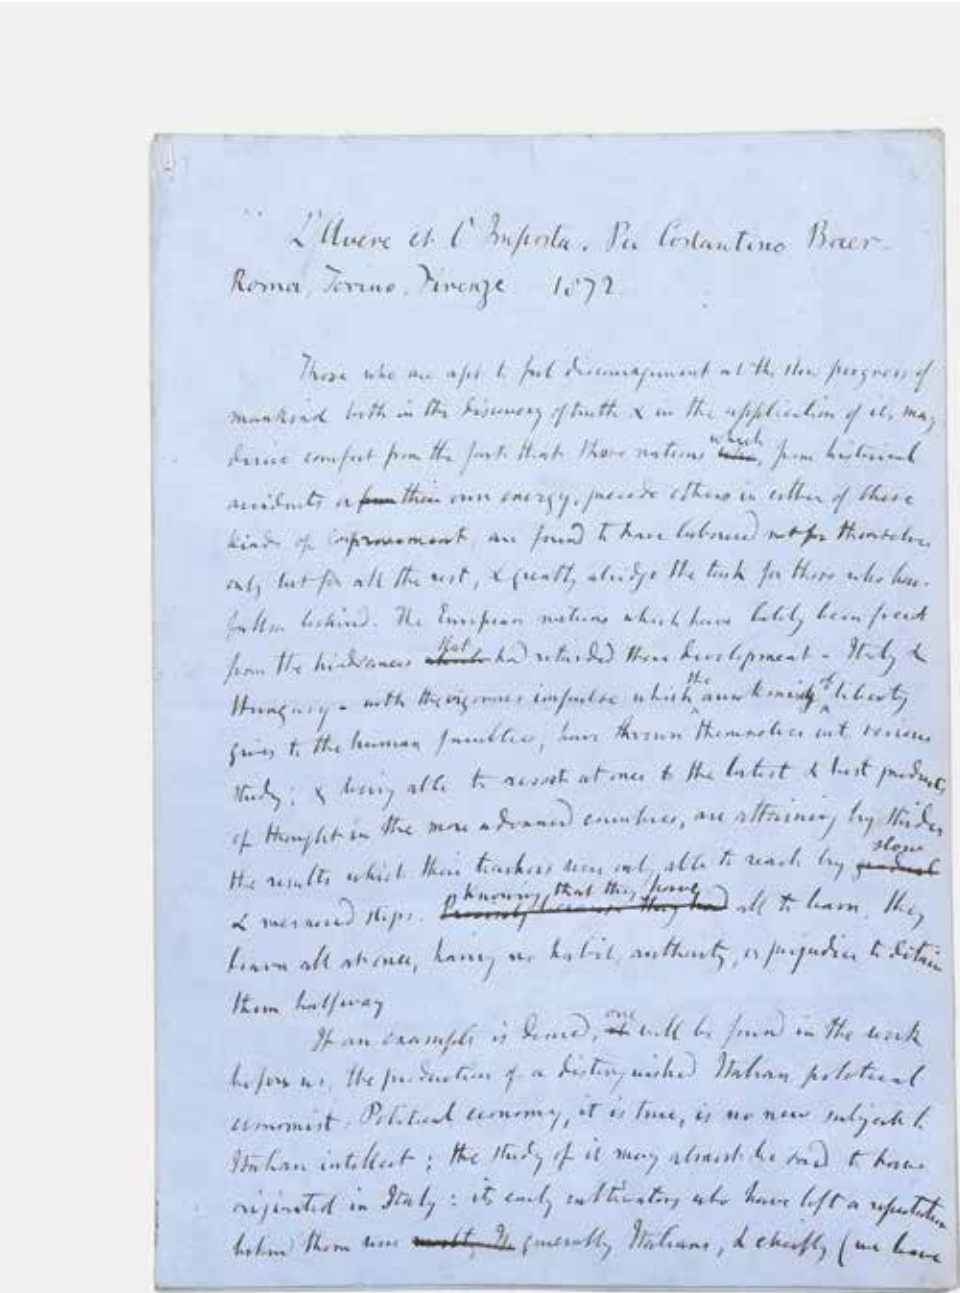 L'Avere et l'Imposta. Per Costantino Baer -
Roma, Torino, Firenze 1872.
Those who are apt to feel discouragement at the slow progress of
mankind both in the discovery of truth & in the application of it, may
derive comfort from the fact that those nations which, from historical
accidents or from their own energy, precede others in either of these
kinds of improvement, are found to have laboured not for themselves
only but for all the rest, & greatly abridge the task for those who have
fallen behind. The European nations which have lately been freed
from the hindrances that had retarded their development - Italy &
Hungary - with the vigorous impulse which the awakening of liberty
gives to the human faculties, have thrown themselves into serious
study; & being able to resort at once to the latest & best products
of thought in the more advanced countries, are attaining by strides
the results which their teachers were only able to reach by slow
& measured steps. Knowing that they have all to learn, they
learn all at once, having no habit, authority, or prejudice to detain
them halfway
If an example is desired, one will be found in the work
before us, the production of a distinguished Italian political
economist. Political economy, it is true, is no new subject to
Italian intellect; the study of it may almost be said to have
originated in Italy: its early cultivators who have left a reputation
behind them were generally Italians, & chiefly (we leave